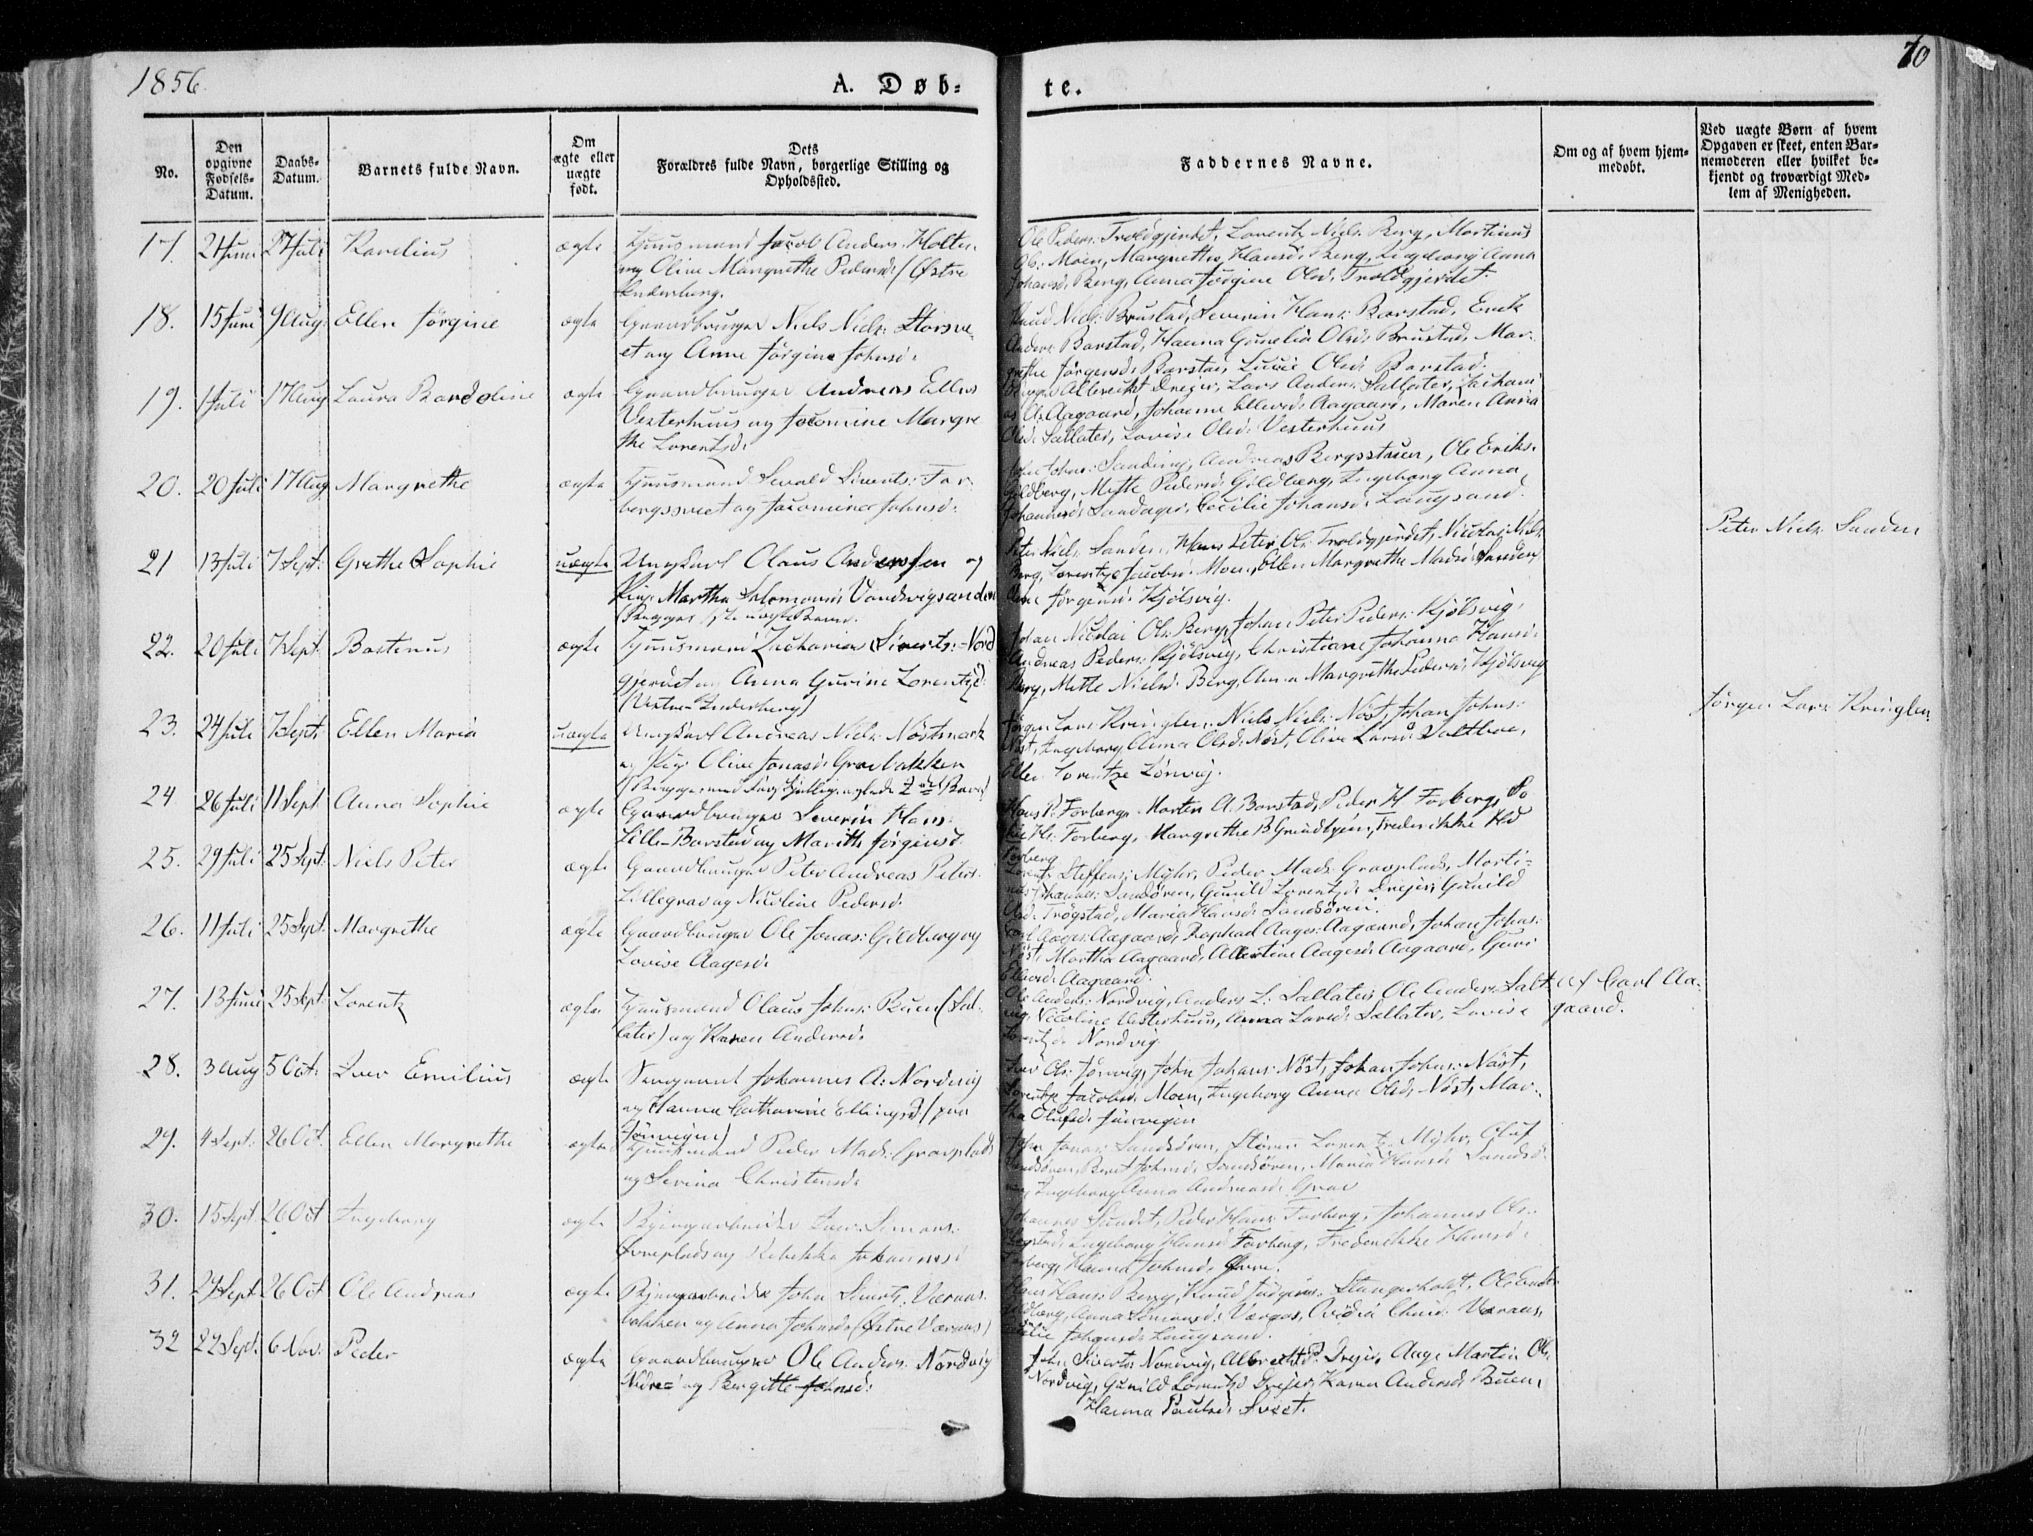 1856.
A. Døb-
te.
70
No.
Den opgivne Fødsels-Datum.
Daabs-Datum.
Barnets fulde Navn.
Om ægte eller uægte født.
Dets Forældres fulde Navn, borgerlige Stilling og Opholdssted.
Faddernes Navne.
Om og af hvem hjem-
medøbt.
Ved uægte Børn af hvem
Opgaven er skeet, enten Bar-
nemoderen eller hvilket be-
kjendt og troværdigt Med-
lem af Menigheden.
17. 27 Juli Karelius ægte Huusmand Jacob Anders: Holten
og Oline Margrethe Pedersd: (Østre
Inderberg.
Ole Peders: Troldgjerdet, Lorentz Niels: Berg, Martinus
Moen, Margrethe Hansd: Berg, Anna
Johansd: Berg, Anna Jørgine Olsd: Troldgjerdet
18. 15 Juni 9 Aug: Ellen Jørgine ægte Gaardbruger Niels Niels: Storsve-
et og Anne Jørgine Johnsd:
Knud Niels: Brustad, Severin Hans: Barstad, Erik
Anders: Barstad, Hanna Olsd: Brustad, Mar-
grethe Jørgensd: Barstad, Olsd: Barstad.
19. 1 Juli 17 Aug Laura Bardoline ægte Gaardbruger Andreas Ellevs
Vesterhuus og Jacomine Margre
the Lorentzd:
Albrecht Drejer, Lars Anders: Sallater, Zachari
as Ol: Aagaard, Johanna Ellevsd: Aagaard, Maren Anna
Olsd: Sallater, Lovise Olsd: Vesterhuus
20. 20 Juli 17 Aug Margrethe ægte Huusmand Sevald Siverts: For
bergssveet og Jacomina Johnsd:
John Johns: Andreas Bergsstuen, Ole Eriks:
Gildberg, Mette Pedersd: Gildberg, Ingeborg Anna
Johannesd: Cecilie Johansd: Laugsand.
21 13 Juli 7 Sept: Grethe Sophie uægte Ungkarl Olaus Anderssen og
Pige Martha Salomonsd: Vandvigsanden
Peter Niels: Sanden, Hans Peter Ol: Troldgjerdet, Nicolai Niels:
Berg, Lorentze Jacobsd: Moen, Ellen Margrethe Madsd: Sanden,
Jørgensd: Kjølsvig.
Peter Niels: Sanden
22. 20 Juli 7 Sept: Bastinus ægte Huusmand Zacharias Siverts: Nord
gjerdet og Anna Gurine Lorentzd:
(Vestre Inderberg)
Johan Nicolai Ols: Berg, Johan Peter Peders: Kjølsvig,
Andreas Peders: Kjølsvig, Christiane Johanna Hansd:
Berg, Mette Nielsd: Berg, Anna Margrethe Pedersd: Kjølsvig
23. 24 Juli 7 Sept: Ellen Maria uægte Ungkarl Andreas Niels: Nøstmark
og Pige Oline Jonasd: Gravbakken
Jørgen Lars: Kringlen, Niels Niels: Nøst, Johan Johns:
Nøst, Ingeborg Anna Olsd: Nøst, Oline Larsd: Saltboe,
Ellen Lorentze Lønvig.
Jørgen Lars: Kringlen
24 26 Juli 11 Sept Anna Sophie ægte Gaardbruger Severin Hans:
Lille-Barstad og Marith Jørgensd.
Hans P: Forberg, Morten A. Barstad, Peder H Forberg, So
phie H: Forberg, Margrethe B Frederikke Hd
Forberg
25. 29 Juli 25 Sept: Niels Peter ægte Gaardbruger Peter Andreas Peters:
Lillegrav og Nicoline Pedersd:
Lorentz Steffens: Myhr, Peder Mads: Gravplads, Marti-
nus Johannes: Sandsøren, Gunild Lorentzd: Drejer, Gunild
Olsd: Trøgstad, Maria Hansd: Sandsøren.
26. 11 Juli 25 Sept: Margrethe ægte Gaardbruger Ole Jonas: Gildberg og
Lovise Aagesd:
Carl Aages: Aagaard, Raphael Aages: Aagaard, Johan Johns:
Nøst, Martha Aagaard, Albertine Aagesd: Aagaard, Guri
Ellevsd: Aagaard.
27. 13 Juni 25 Sept: Lorentz ægte Huusmand Olaus Johns: Buen (Sal-
later) og Karen Andersd:
Ole Anders: Nordvig, Anders L: Sallater, Ole Anders: Salt
vig, Nicoline Vesterhuus, Anna Larsd: Sallater, Lovise
Lorentzd: Nordvig
Af Carl Aa-
gaard.
28. 3 Aug 5 Oct: Iver Emilius ægte Sergeant Johannes A: Nordvig
og Hanna Catharine Ellingsd: (paa
Jønvigen)
Ols: Jønvig, John Johans: Nøst, Johan Johns: Nøst,
Lorentze Jacobsd: Moen, Ingeborg Anna Olsd: Nøst, Mar-
tha Olufsd: Jønvigen
29. 4 Sept: 26 Oct. Ellen Margrethe ægte Huusmand Peder Mads: Gravplads
og Serina Christensd:
Jonas: Sandsøren, Støren Lorentz: Myhr, Oluf
Sandsøren, Beret Johnsd: Sandsøren, Maria Hansd: Sandsø-
ren, Ingeborg Anna Andreasd: Grav
30. 15 Sept 26 Oct Ingeborg ægte Bjergarbeider Iver Simons:
Øvreplads og Rebekka Johannesd:
Johannes Sundet, Peder Hans: Forberg, Johannes Ols:
Ingeborg Hansd: Forberg, Frederikke Hansd:
Forberg, Hanna Johnsd: Øvre.
31. 27 Sept 26 Oct Ole Andreas ægte Bjergarbeider John Siverts: Værans-
bakken og Anna Johnsd: (Østre Værans)
Hans Hans: Berg, Knud Jørgens: Stangerholt, Ole
Gildberg, Anna Simonsd: Chrisd: Værans,
Johansd: Laugsand.
32 22 Sept: 6 Nov: Peder ægte Gaardbruger Ole Anders: Nordvig
Nedre- og Bergitte Johnsd:
John Siverts: Nordvig, Albrecht P. Drejer, Aage Martin Ols:
Nordvig, Gunild Lorentzd Drejer, Karen Andersd: Buen,
Hanna Paulsd: Sveet.